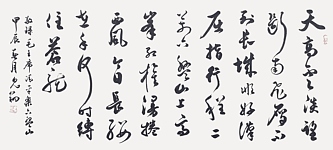 天高云淡望
断南飞雁不
到长城非好汉
屈指行程二
万六盘山上高
峰红旗漫卷
西风今日长缨
在手何时缚
住苍龙
毛主席词清平乐六盘山
甲辰